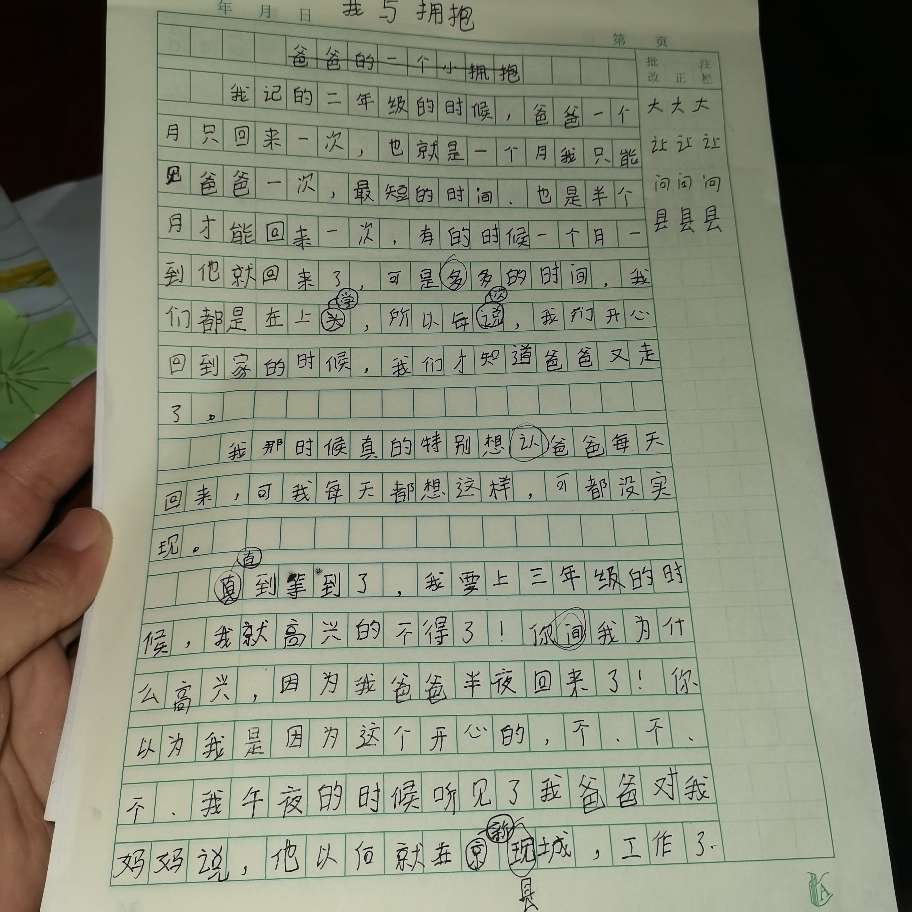 年 月 日 我与拥抱
第 页
批改 正 注栏
爸爸的一个小拥抱
我记的二年级的时候，爸爸一个
月只回来一次，也就是一个月我只能
见爸爸一次，最短的时间、也是半个
月才能回来一次，有的时候一个月一
到他就回来了，可是多多的时间，我
学 次
们都是在上头，所以每说，我们开心
回到家的时候，我们才知道爸爸又走
了。
我那时候真的特别想认爸爸每天
回来，可我每天都想这样，可都没实
现。
直
真到等到了，我要上三年级的时
候，我就高兴的不得了！你间我为什
么高兴，因为我爸爸半夜回来了！你
以为我是因为这个开心的，不、不、
不、我午夜的时候听见了我爸爸对我
妈妈说，他以后就在京现城，工作了.
县
大大大
让让让
问问问
县县县